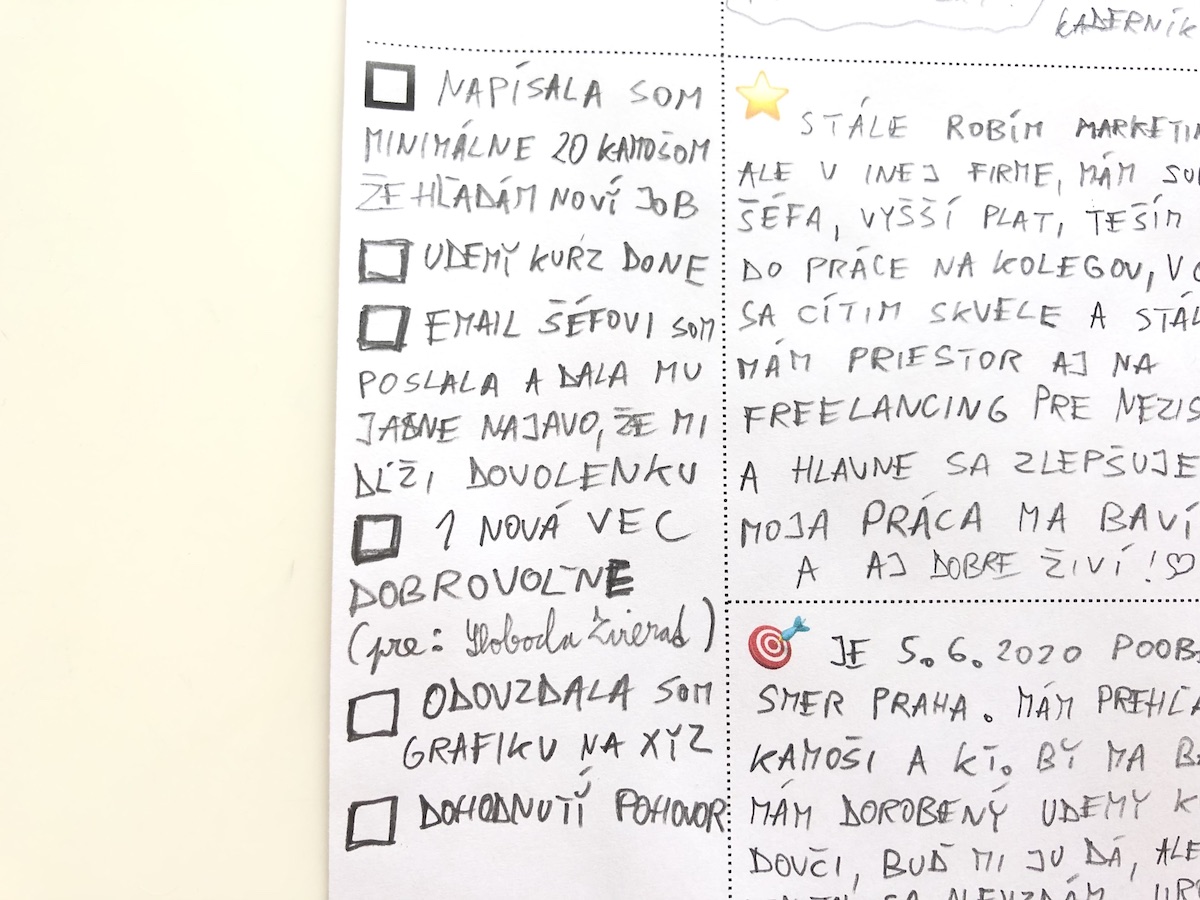 KADERNÍK
NAPÍSALA SOM
MINIMÁLNE 20 KAMOŠOM
ŽE HĽADÁM NOVÍ JOB
UDEMY KURZ DONE
EMAIL ŠÉFOVI SOM
POSLALA A DALA MU
JASNE NAJAVO, ŽE MI
DĹŽI DOVOLENKU
1 NOVÁ VEC
DOBROVOĽNE
(pre: Sloboda Zvierad)
ODOVZDALA SOM
GRAFIKU NA XYZ
DOHODNUTÍ POHOVOR
STÁLE ROBÍM MARKETIN
ALE V INEJ FIRME, MÁM SU
ŠÉFA, VYŠŠÍ PLAT, TEŠÍM
DO PRÁCE NA KOLEGOV, V
SA CÍTIM SKVELE A STÁL
MÁM PRIESTOR AJ NA
FREELANCING PRE NEZIS
A HLAVNE SA ZLEPŠUJE
MOJA PRÁCA MA BAVÍ
A AJ DOBRE ŽIVÍ! ♡
JE 5.6.2020 POOB
SMER PRAHA. MÁM PREHĽA
KAMOŠI A KT. BY MA B
MÁM DOROBENÝ UDEMY K
DOUČI, BUĎ MI JU DÁ, ALE
SA NEVZDÁM